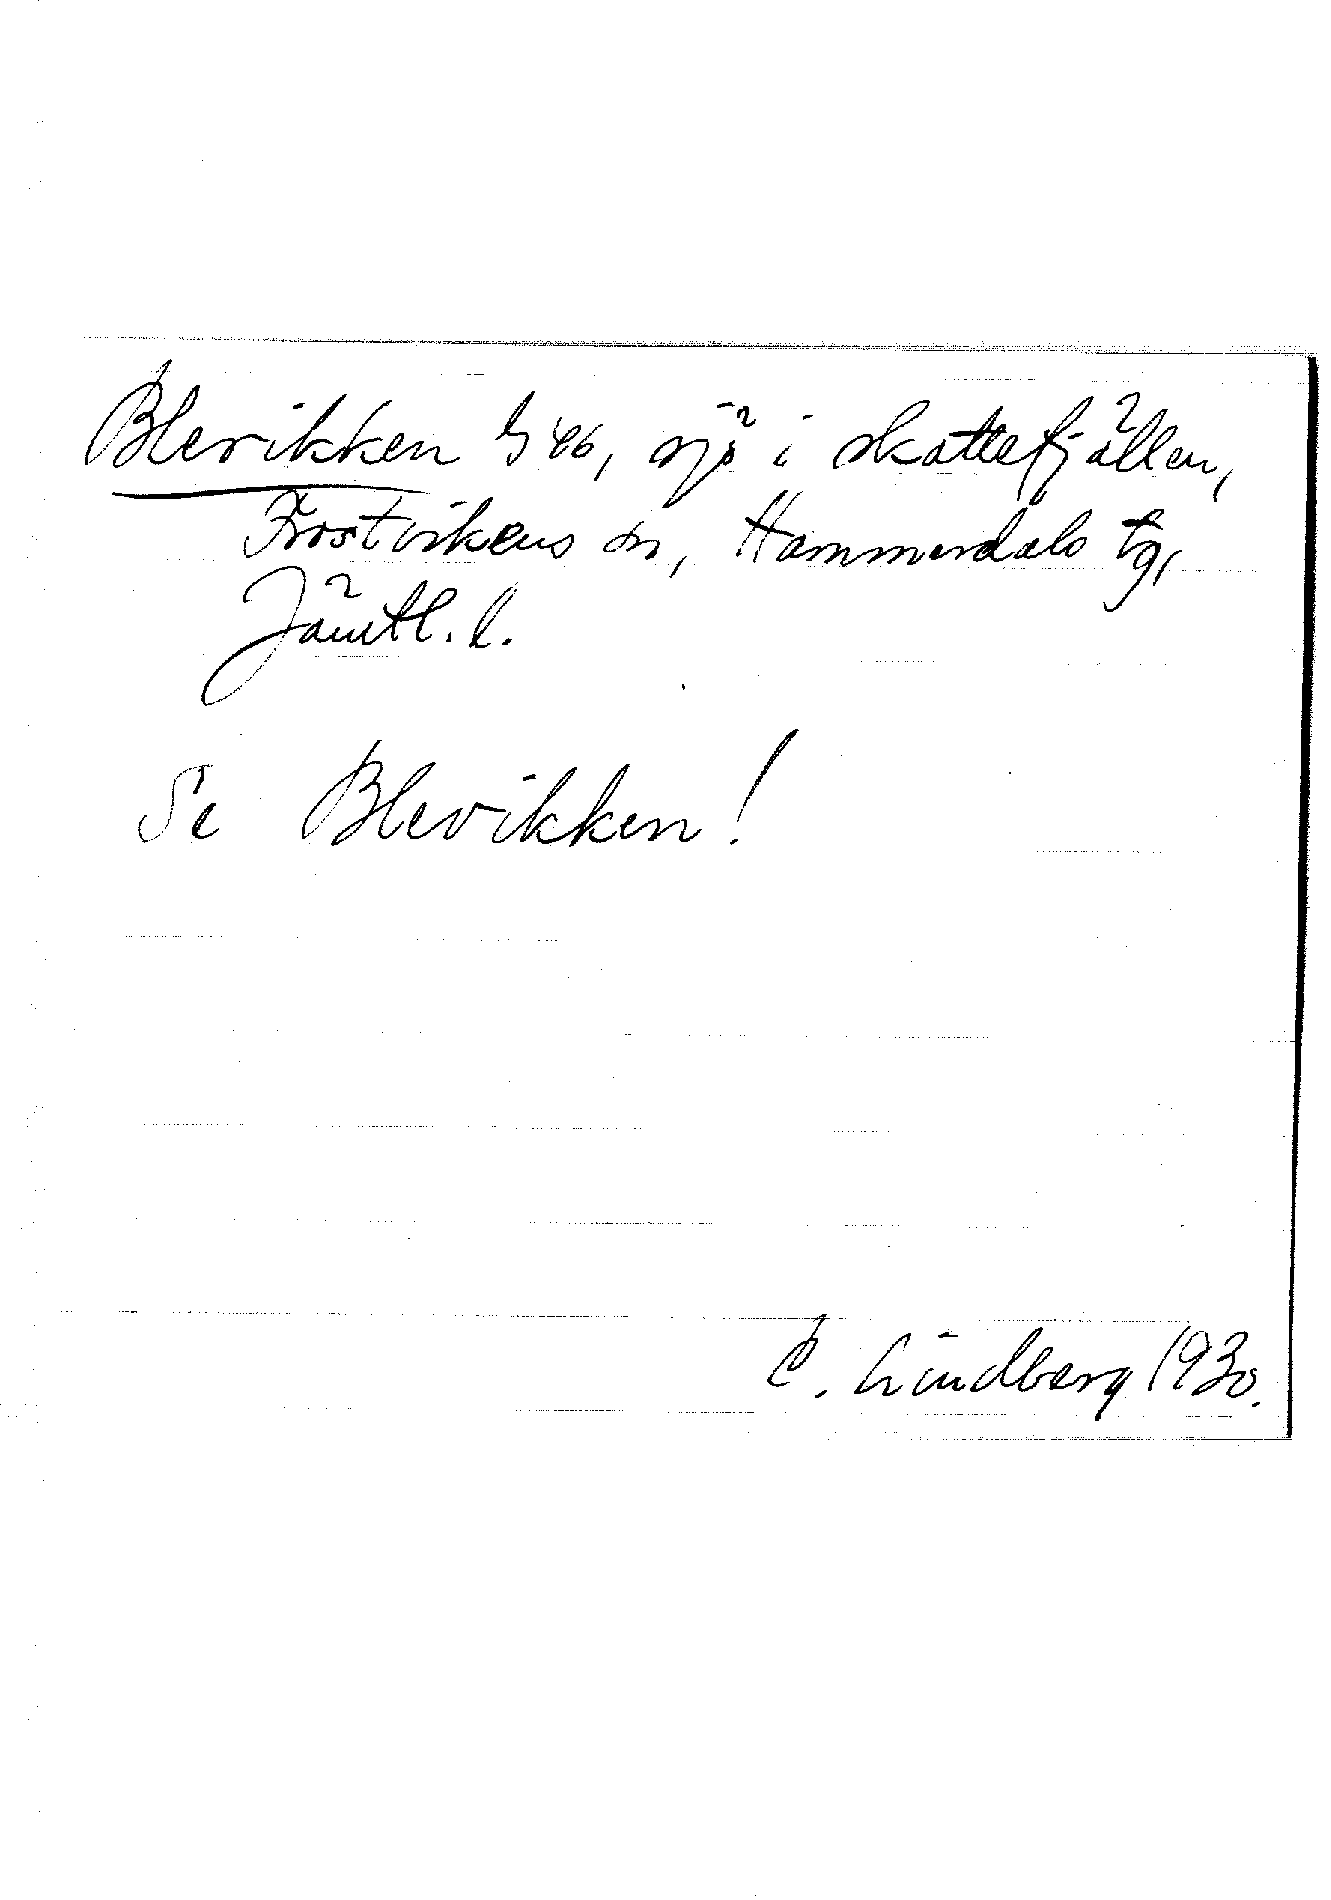 Blevikken G 46, sjö i skattefjällen,
Frostvikens sn, Hammerdals tg,
Jämtl. l.
Se Blevikken!
C. Lindberg 1930.